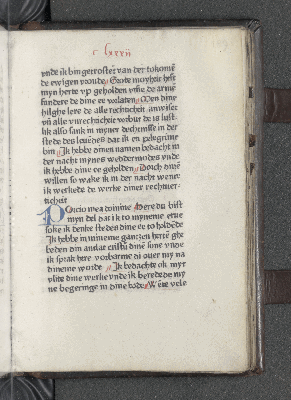 c lxxxii
vnde ik bin getrostet van der tokome
de ewigen vroude Grote moyheit heft
myn herte vp geholden vnde de arme
sundere de dine ee vorlaten Men dine
hilghe lere de alle rechticheit anwiset
vn alle vnrechticheit vorbut de is lust
lik also sank in myner dechtnisse in der
stede des leuendes dat ik en pelegrime
bin Ik hebbe dinen namen bedacht in
der nacht mynes wedder modes vnde
ik hebbe dine ee geholden Dorch dine
willen so wake ik in der nacht wente
ik werkede de werke diner rechtuer
ticheit
Porcio mea domine Here du bist
myn del dat ik to myneme erue
soke ik denke stede dine ee to holdede
Ik hebbe in mineme gantzen herte ghe
beden din antlat cristu dine sone vnde
ik sprak here vorbarme di ouer my na
dineme worde Ik bedachte ok myt
vlite dine werke vnde ik berede de my
ne begeringe in dine bode Were vele